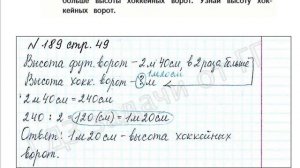 больше высоты хоккейных ворот. Узнай высоту хок-
кейных ворот.
N 189 стр. 49
Высота фут. ворот - 2 м 40см, в 2 раза больше
1м20см
Высота хокк. ворот - ? м
2 м 40см = 240см
240 : 2 = 120 (см) = 1м 20см
Ответ: 1м 20см - высота хоккейных
ворот.